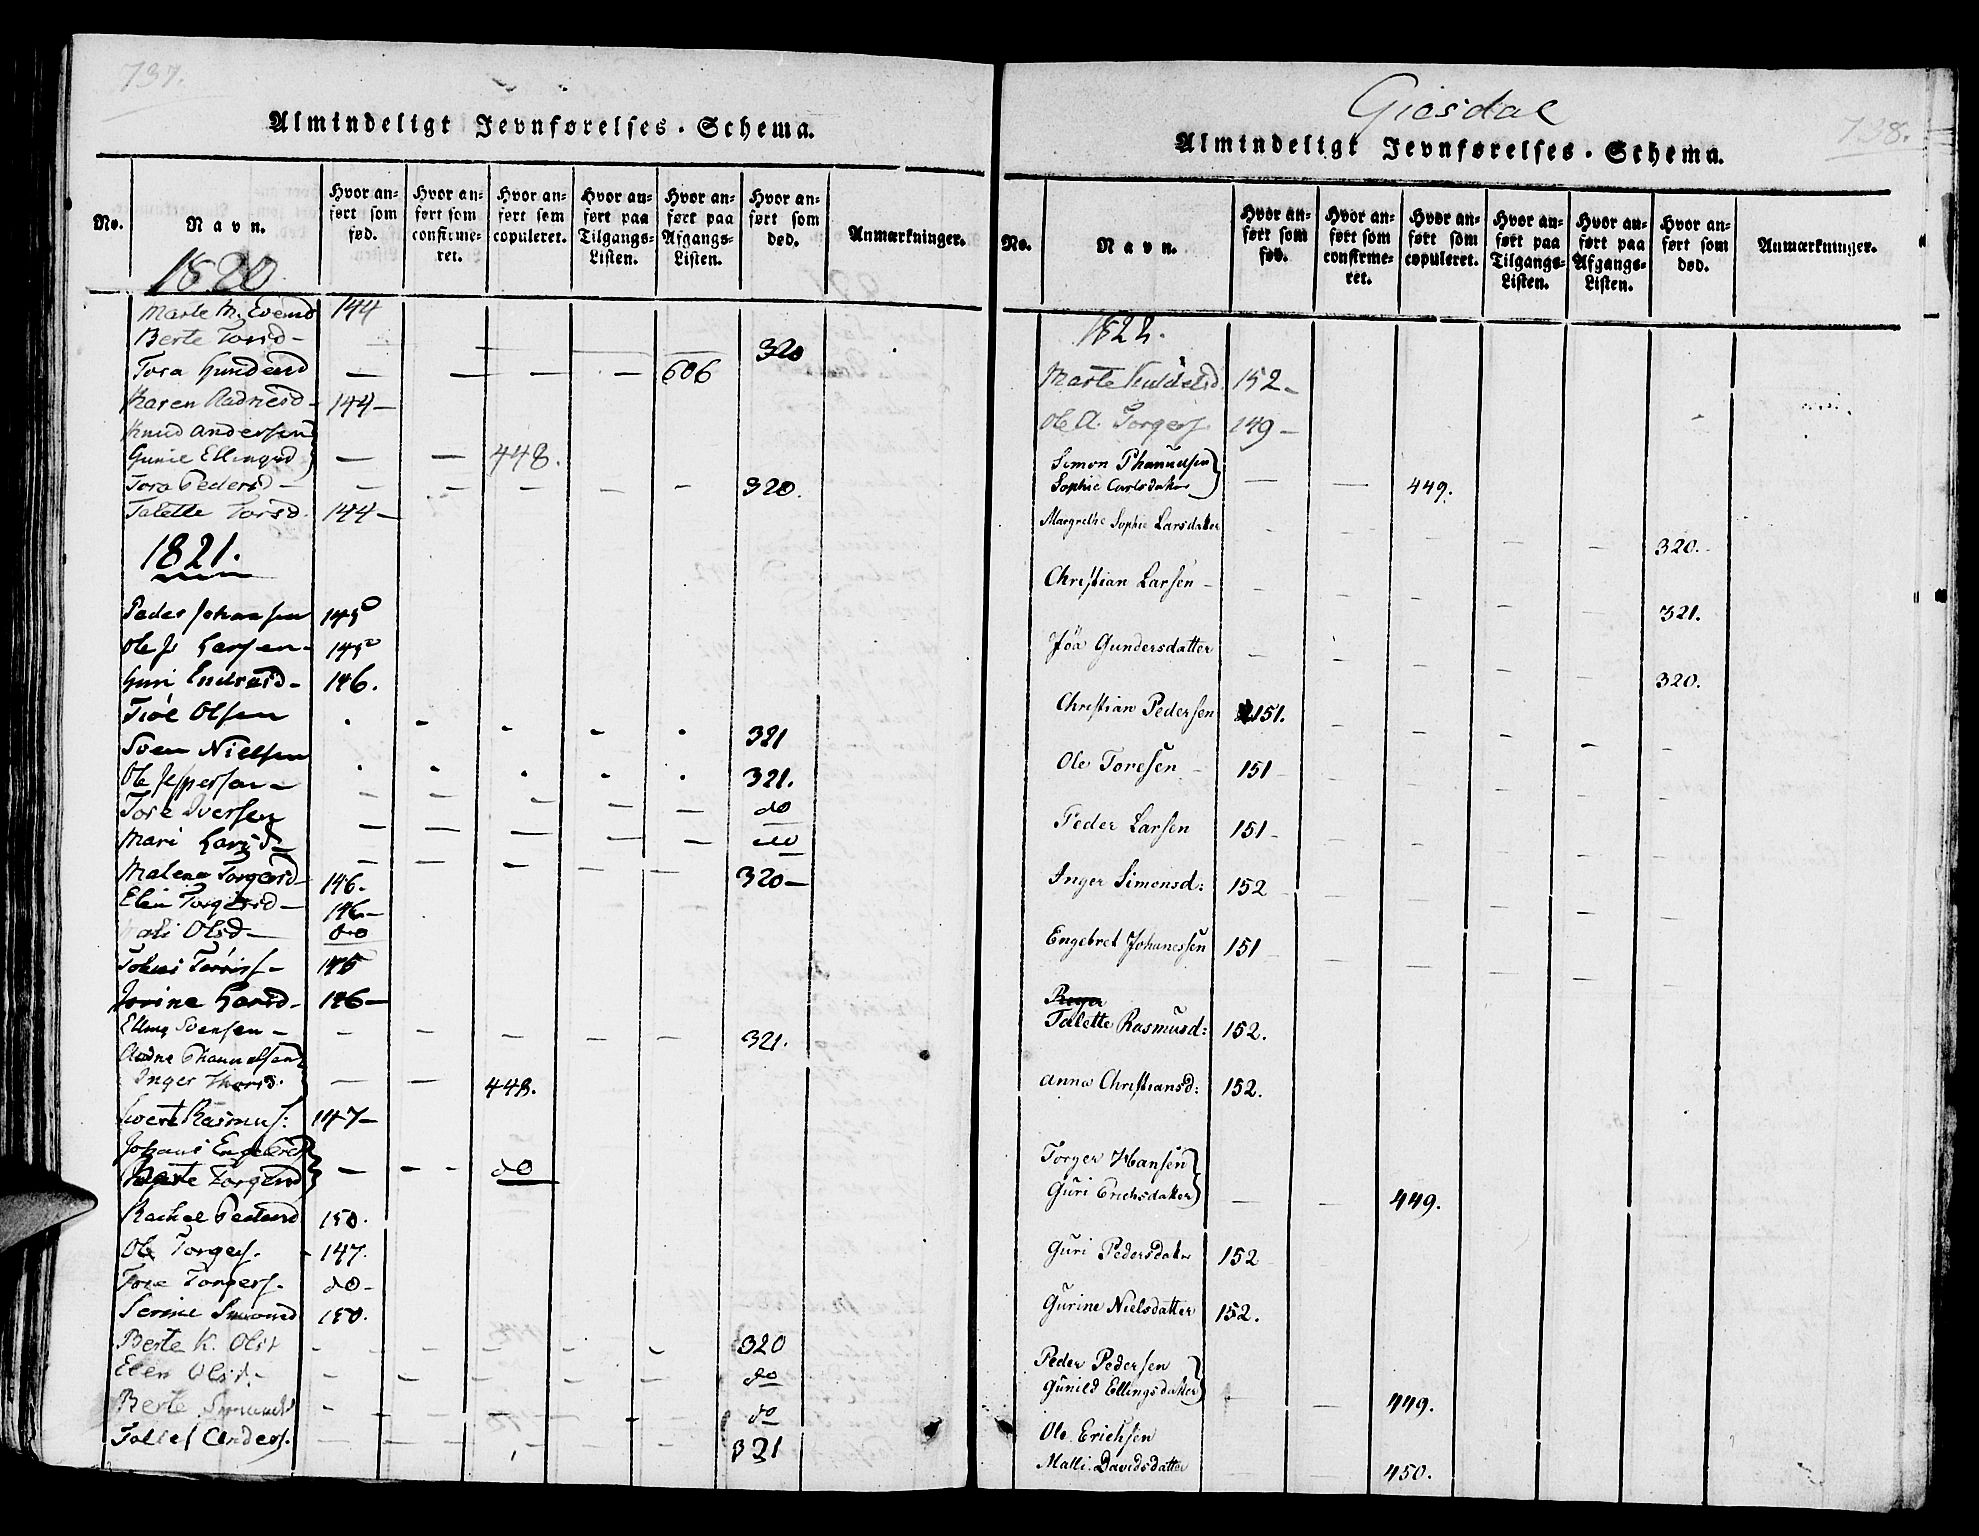 737.
Almindeligt Jevnførelses-Schema.
No.
Navn.
Hvor anført som fød.
Hvor anført som confirmeret.
Hvor anført som copuleret.
Hvor anført paa Tilgangs-Listen.
Hvor anført paa Afgangs-Listen.
Hvor anført som død.
Anmærkninger.
1820
Marte M. Evensd 144
Berte Torsd - 320
Tora Gundersd — — — — 606
Karen Aadnesd - 144 -
Knud Andersen
Gunie Ellingsd — — 448.
Tora Pedersd - — — — — — 320.
Talette Torsd. 144 -
1821.
Peder Johansen 145
Ole J. Larsen - 145
Guri Endresd - 146.
Tiøl Olsen 321
Sven Nielsen 321.
Ole Jespersen - do
Tore Iversen do
Mari Larsd - 320 -
Malena Torgersd - 146.
Elen Torgersd - 146 -
Olsd - do
Tønnisf - 145
Larsd - 146 -
Elling Svensen - — — — — — 321.
Aadne Phanuelsen
Inger Thorsd. — — 448.
Sivert Rasmusf: 147 -
Johans Engebretf
Torgersd — - - do
Rachel Pedersd 150.
Ole Torgerf. - 147.
Tore Torgersf. do -
Serine Simonsd 150.
Berte K. Olsd 320
Elen Olsd. - do
Berte Simonsd do
Tollef Andersf. 321
Giesdal
738.
Almindeligt Jevnførelses-Schema.
No.
Navn.
Hvor anført som fød.
Hvor anført som confirmeret.
Hvor anført som copuleret.
Hvor anført paa Tilgangs-Listen.
Hvor anført paa Afgangs-Listen.
Hvor anført som død.
Anmærkninger.
1822.
Marte 152 -
Ole A. Torgersf. 149 -
Simon Phanuelsen
Sophie Carlsdatter — — 449.
Margrethe Sophie Larsdatter 320.
Christian Larsen - 321.
Gundersdatter 320.
Christian Pedersen 151.
Ole Toresen 151
Peder Larsen 151
Inger Simonsd: 152
Engebret Johanessen 151
Talette Rasmusd: 152.
Anna Christiansd: 152.
Torger Hansen
Guri Erichsdatter — — 449.
Guri Pedersdatter 152
Gurine Nielsdatter 152.
Peder Pedersen
Gunild Ellingsdatter — — 449.
Ole Erichsen
Malli Davidsdatter — — 450.